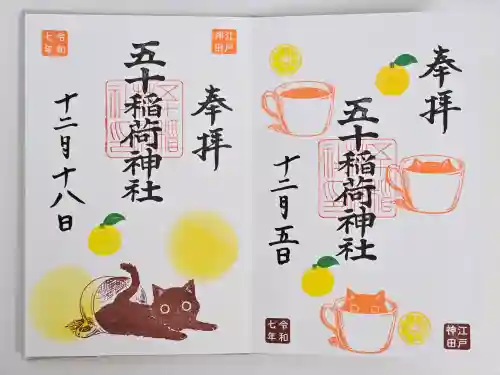 奉拝
江戸
神田
五十稲荷神社
十二月五日
令和
七年
奉拝
江戸
神田
五十稲荷神社
十二月十八日
令和
七年